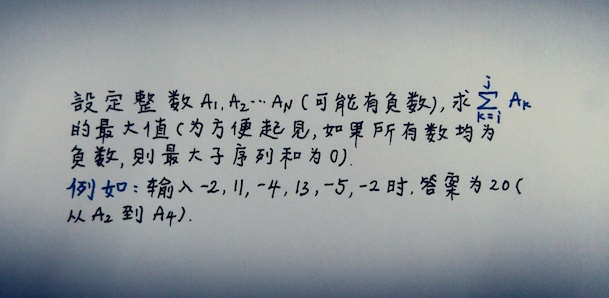 設定整数A1,A2…AN(可能有負数),求∑(k=i到j)Ak
的最大值(为方便起見,如果所有数均为
負数,則最大子序列和为0).
例如:输入-2,11,-4,13,-5,-2时,答案为20(
从A2到A4).